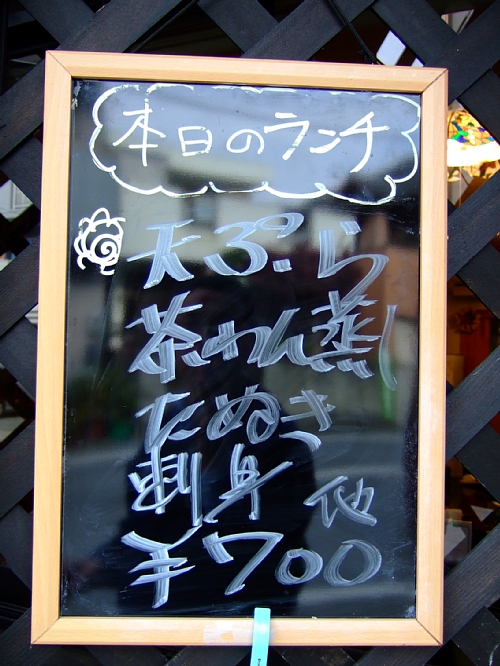 本日のランチ
天ぷら
茶わん蒸し
たぬき
刺身 他
¥700